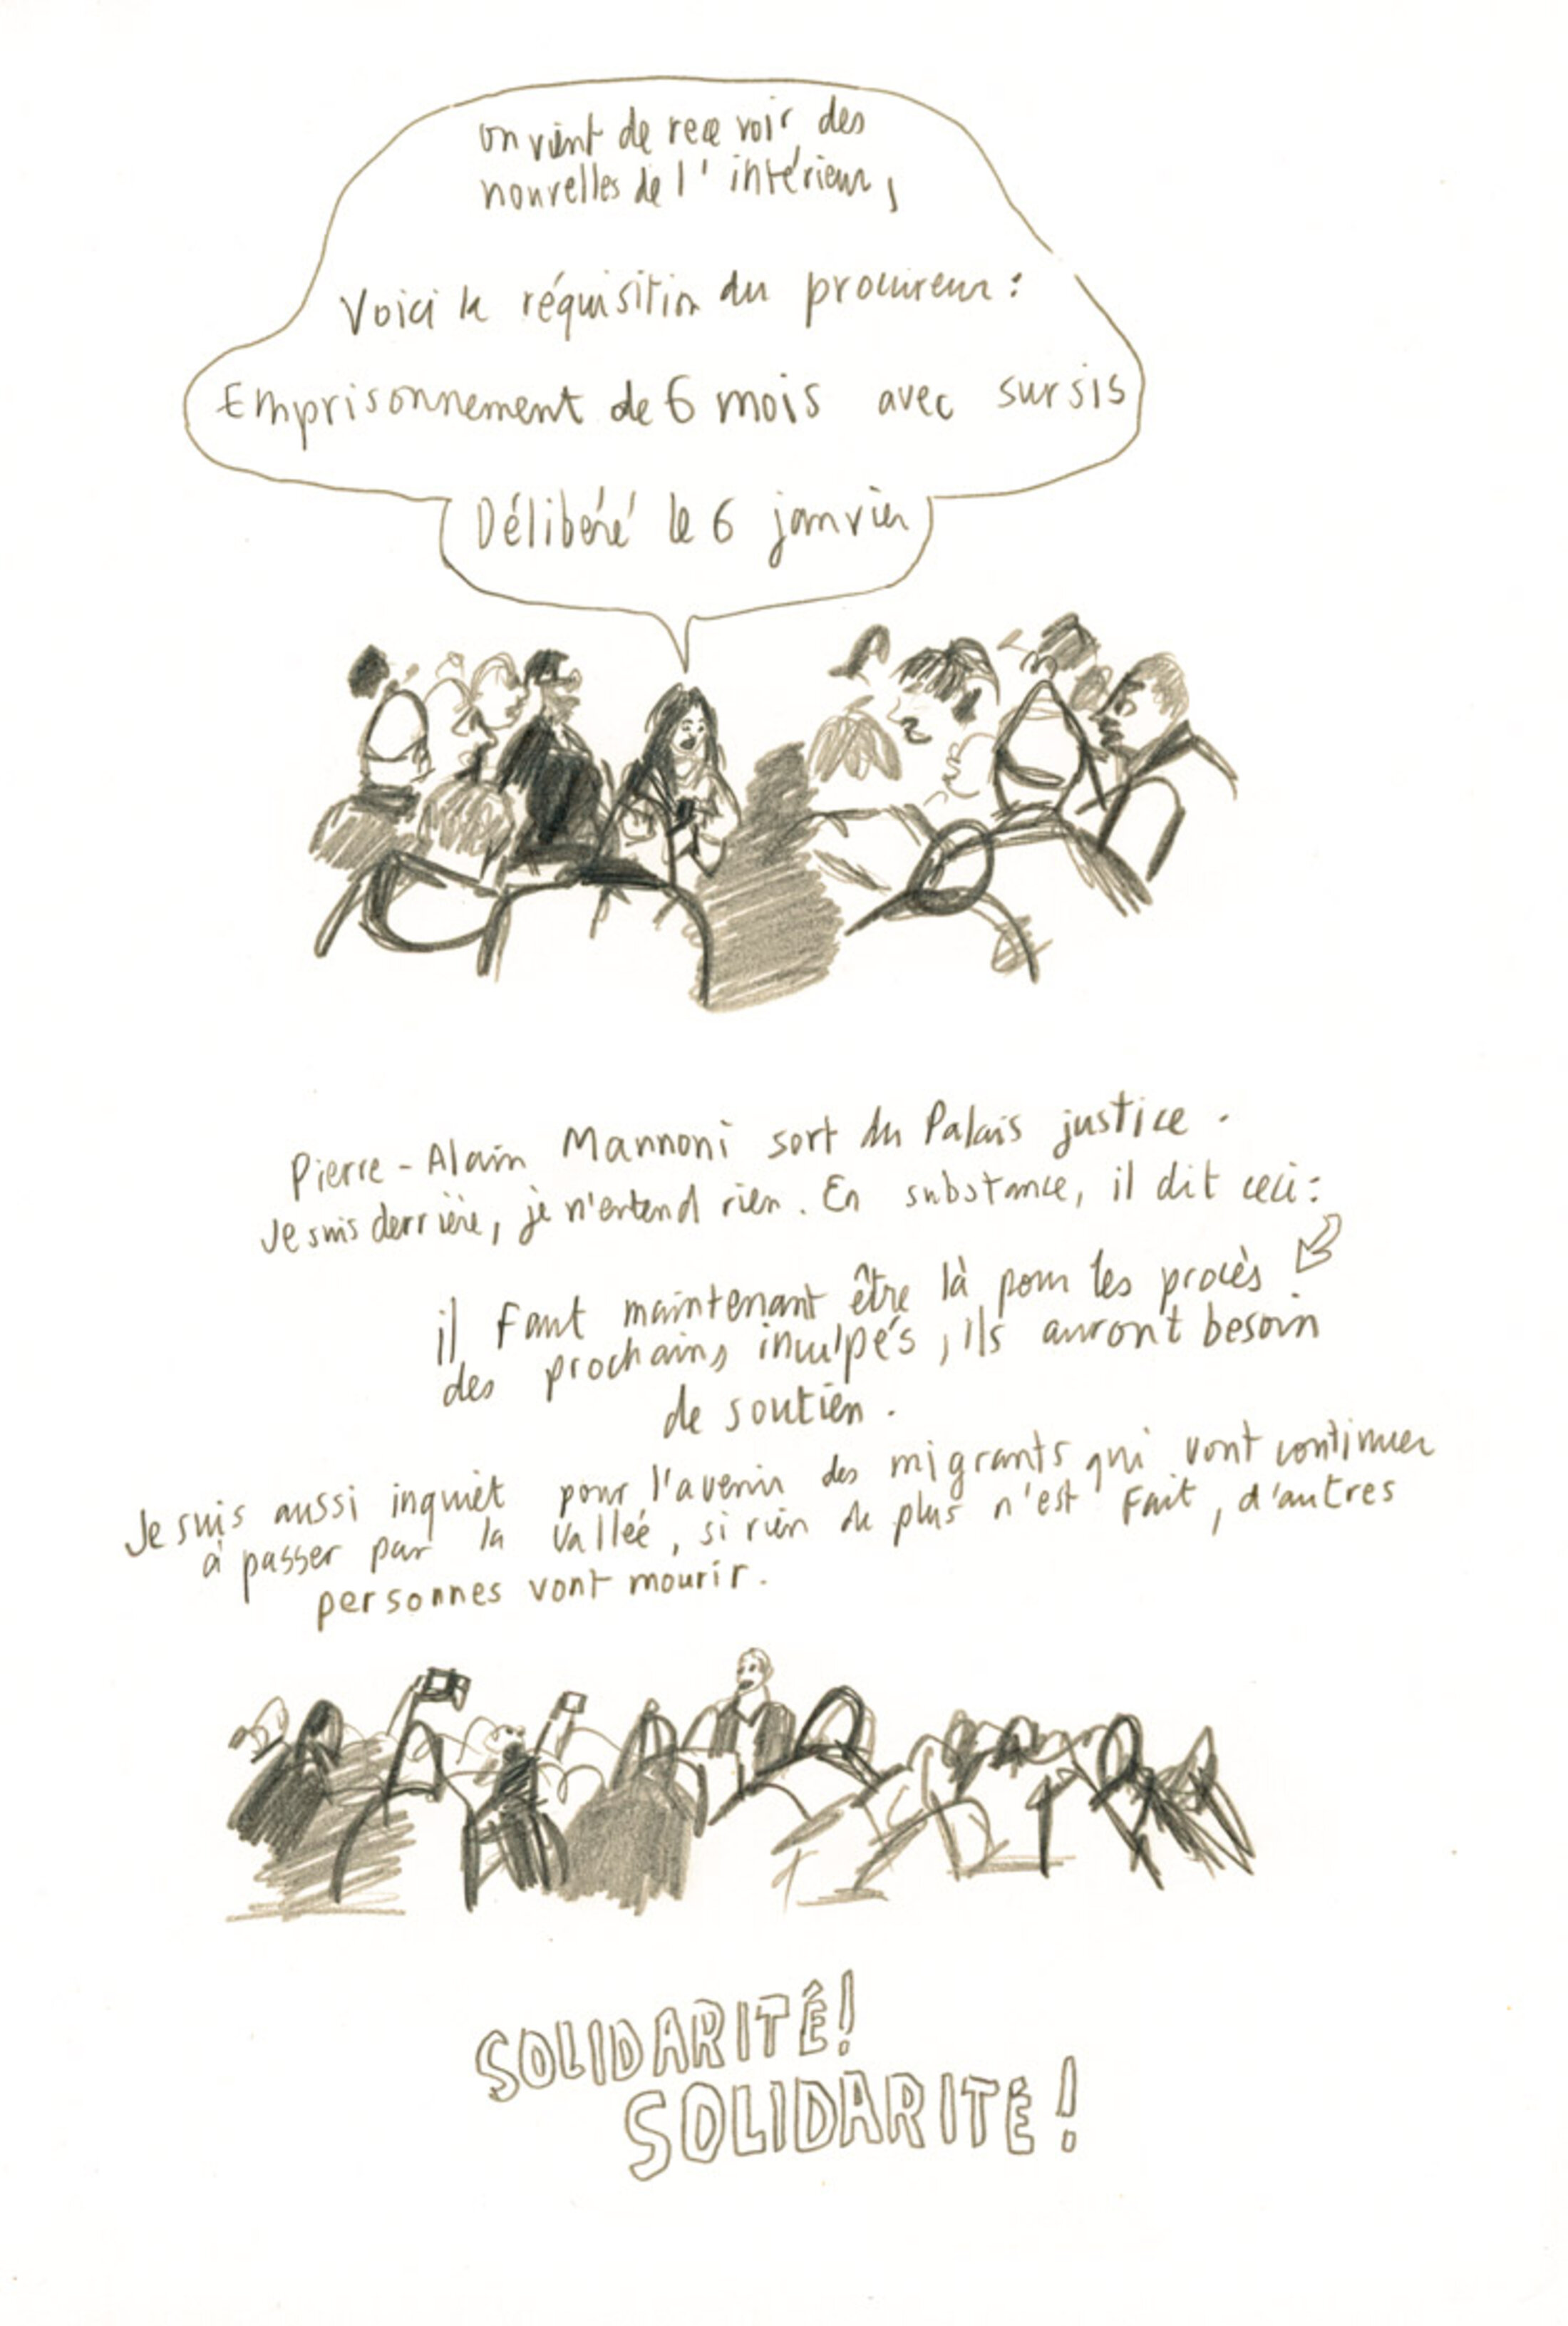 on vient de recevoir des
nouvelles de l'intérieur,
Voici la réquisition du procureur :
Emprisonnement de 6 mois avec sursis
Délibéré le 6 janvier
Pierre-Alain Mannoni sort du Palais justice.
Je suis derrière, je n'entend rien. En substance, il dit ceci :
il faut maintenant être là pour les procès
des prochains inculpés, ils auront besoin
de soutien.
Je suis aussi inquiet pour l'avenir des migrants qui vont continuer
à passer par la Vallée, si rien de plus n'est fait, d'autres
personnes vont mourir.
SOLIDARITÉ !
SOLIDARITÉ !